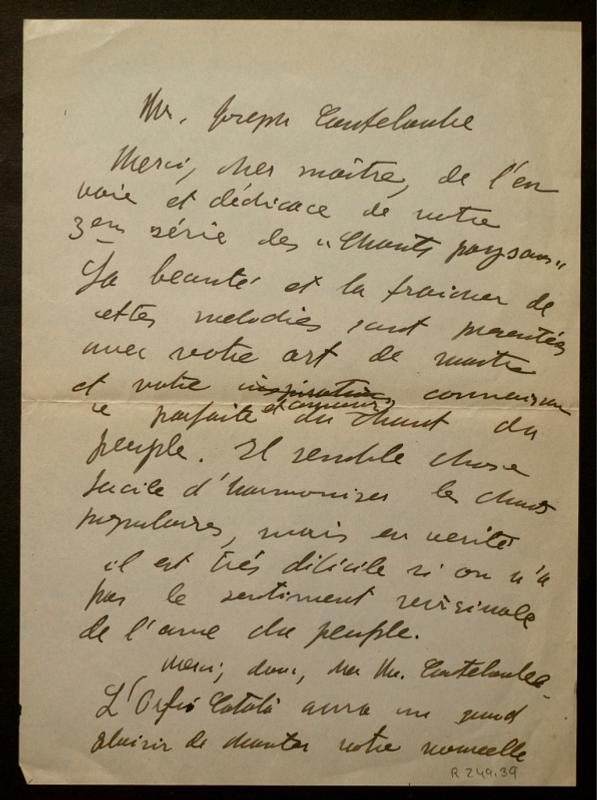 Mr. Joseph Canteloube
Merci, cher maître, de l'en
voie et dédicace de votre
3em série des "Chants paysans"
La beauté et la fraicheur de
cettes melodies sont presentées
avec votre art de maitre
et votre inspiration, connaissan
ce parfaite et amour, du chant du
peuple. Il semble chose
facile d'harmoniser les chants
populaires, mais en verité
il est trés dificile si on n'a
pas le sentiment
de l'ame du peuple.
Merci, donc, cher Mr. Canteloube
L'Orfeó Català aura un grand
plaisir de chanter votre nouvelle
R 249.39